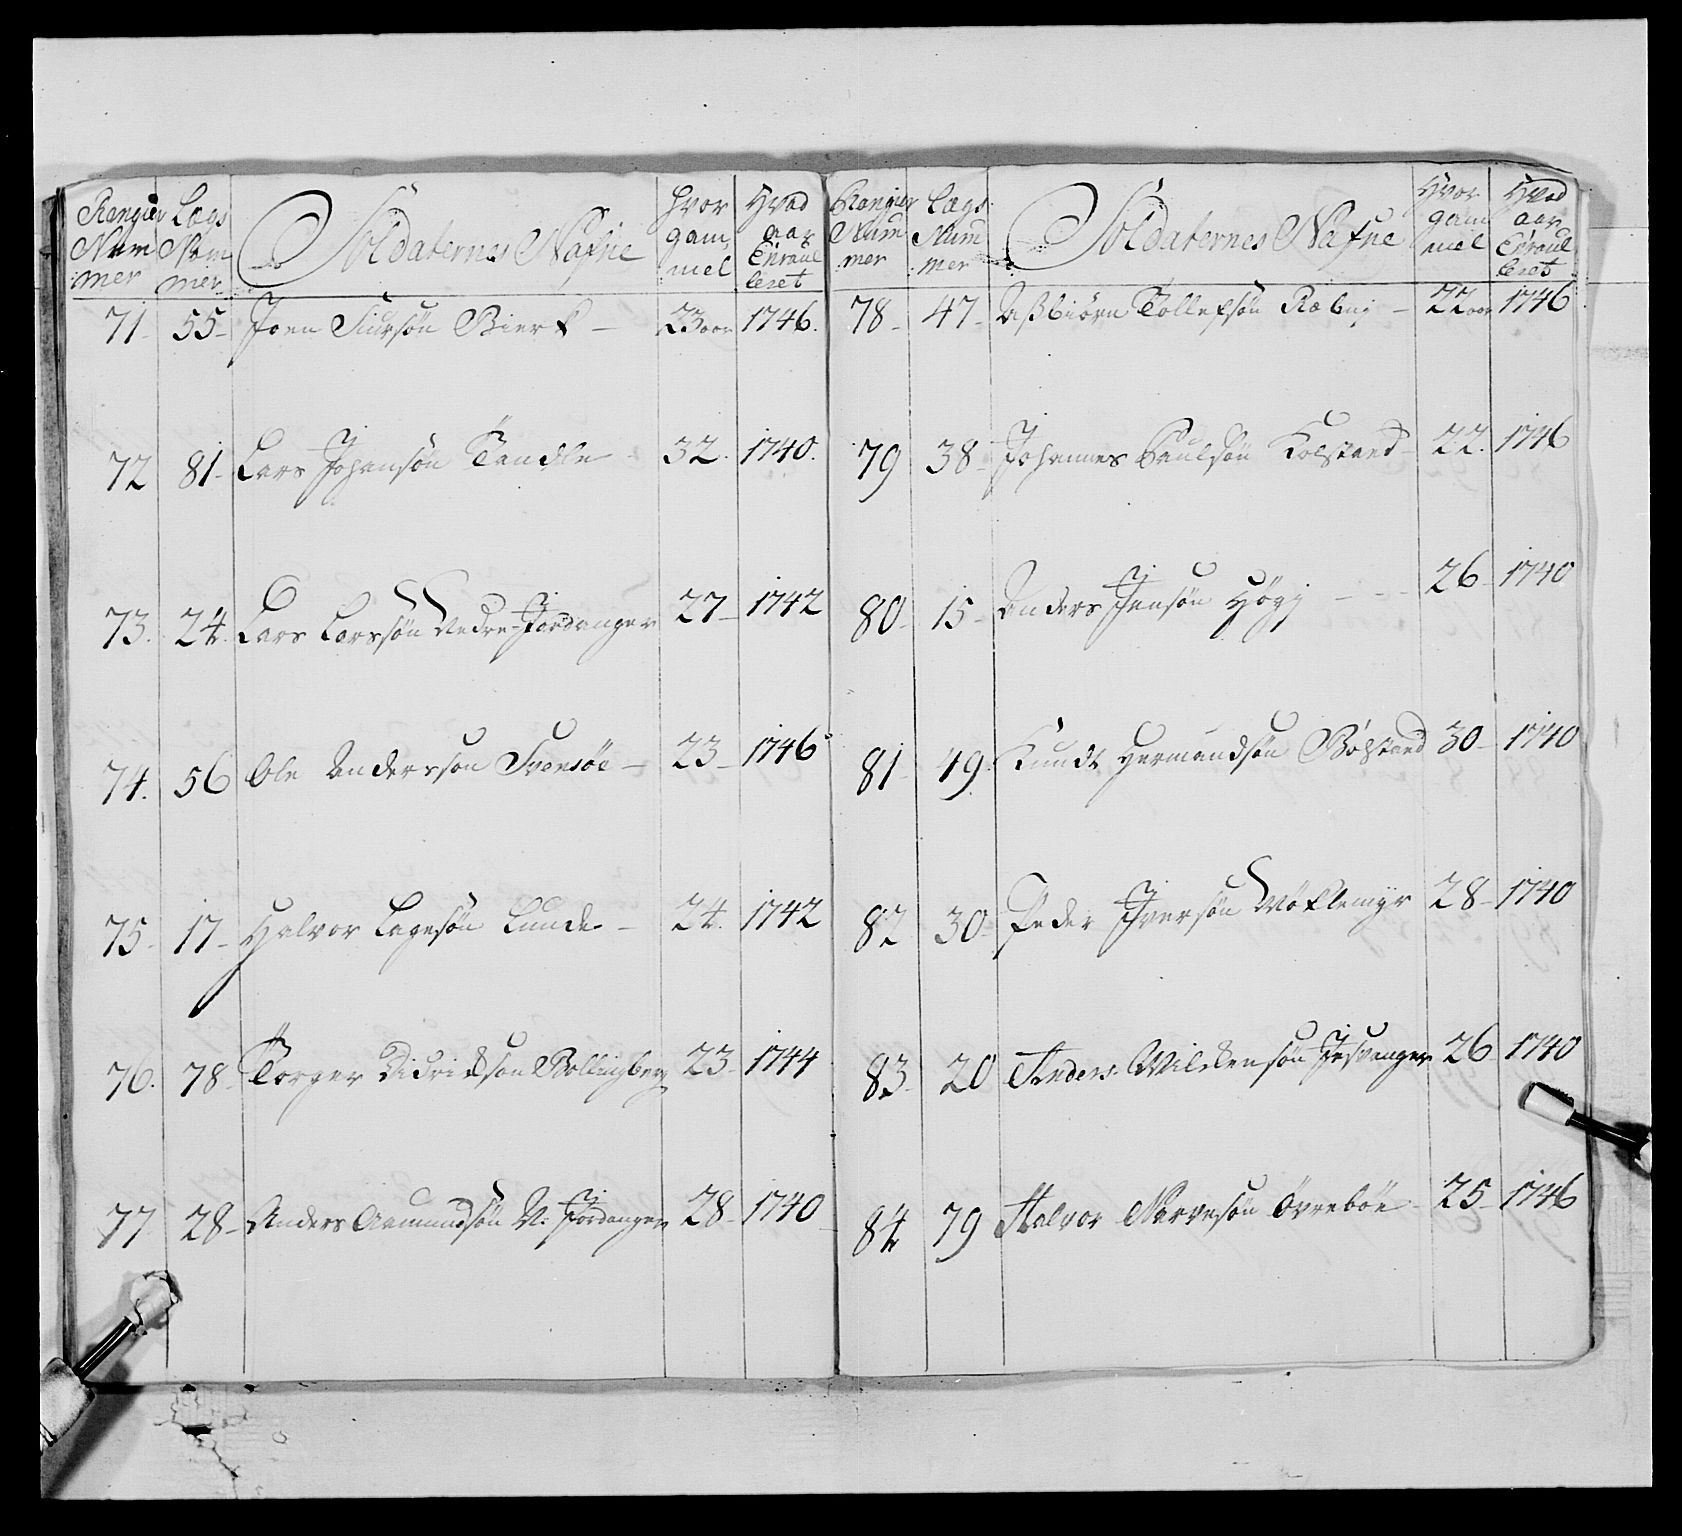 Rangier Num mer | Lægs Num mer | Soldaternes Nafne | Hvor gam mel | Hvad aar Enroul leret
71 - 55 - Joen Siursøn Bierk - 23 aar 1746.
72 81 - Lars Johansøn Tandle 32. 1740.
73. 24. Lars Larssøn Nedre-Jordanger 27 - 1742
74. 56 Ole Anderssøn Svensøe - 23 - 1746
75 - 17 - Halvor Lagesøn Lunde - 24. 1742
76. 78 - Torger Didricksøn Bollingberg 23 - 1744
77 28 - Anders Aamundsøn N: Jordanger 28 - 1740
Rangier Num mer | Lægs Num mer | Soldaternes Nafne | Hvor gam mel | Hvad aar Enroul leret
78 - 47 - Asbiørn Tollefsøn - 22 aar 1746
79 38 - Johannes Paulsøn Kolstand - 22. 1746
80 - 15 - Anders Jensøn Høgj - - - 26 - 1740
81 - 49. Knudt Hermandsøn Bøstand 30 - 1740
82 30 - Peder Iversøn 28 - 1740
83 - 20 Anders 26 1740
84 79 Halvor Narvesøn Øvrebøe - 25 - 1746